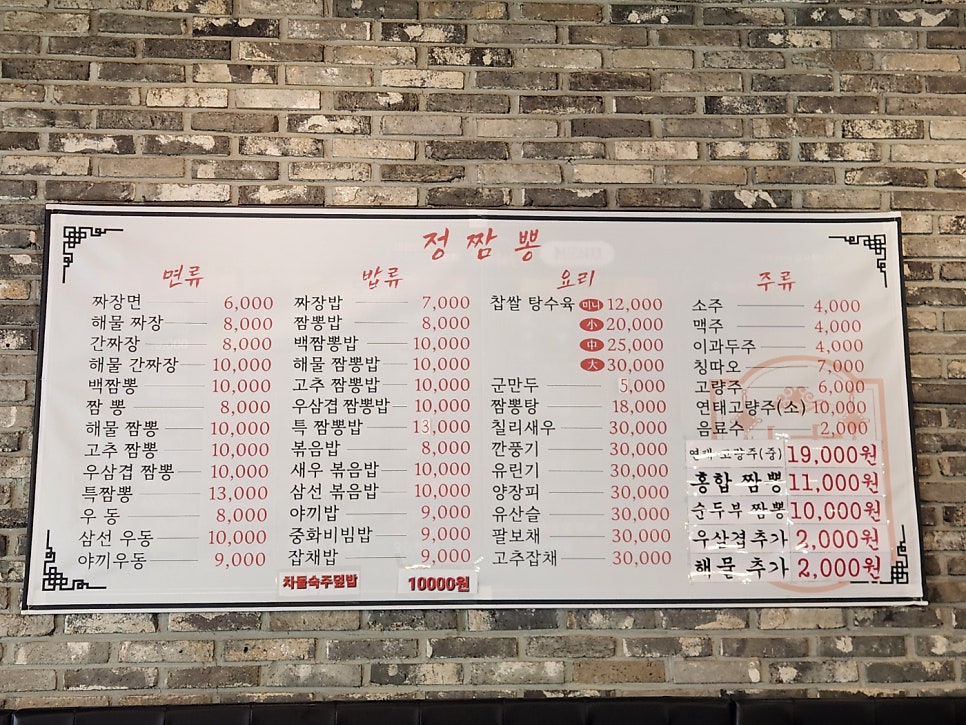 정 짬 뽕
면류
짜장면 6,000
해물 짜장 8,000
간짜장 8,000
해물 간짜장 10,000
백짬뽕 10,000
짬 뽕 8,000
해물 짬뽕 10,000
고추 짬뽕 10,000
우삼겹 짬뽕 10,000
특짬뽕 13,000
우 동 8,000
삼선 우동 10,000
야끼우동 9,000
밥류
짜장밥 7,000
짬뽕밥 8,000
백짬뽕밥 10,000
해물 짬뽕밥 10,000
고추 짬뽕밥 10,000
우삼겹 짬뽕밥 10,000
특 짬뽕밥 13,000
볶음밥 8,000
새우 볶음밥 10,000
삼선 볶음밥 10,000
야끼밥 9,000
중화비빔밥 9,000
잡채밥 9,000
차돌숙주덮밥 10000원
요리
찹쌀 탕수육 미니 12,000
小 20,000
中 25,000
大 30,000
군만두 5,000
짬뽕탕 18,000
칠리새우 30,000
깐풍기 30,000
유린기 30,000
양장피 30,000
유산슬 30,000
팔보채 30,000
고추잡채 30,000
주류
소주 4,000
맥주 4,000
이과두주 4,000
칭따오 7,000
고량주 6,000
연태고량주(소) 10,000
음료수 2,000
연태 고량주(중) 19,000원
홍합 짬뽕 11,000원
순두부 짬뽕 10,000원
우삼겹추가 2,000원
해물 추가 2,000원